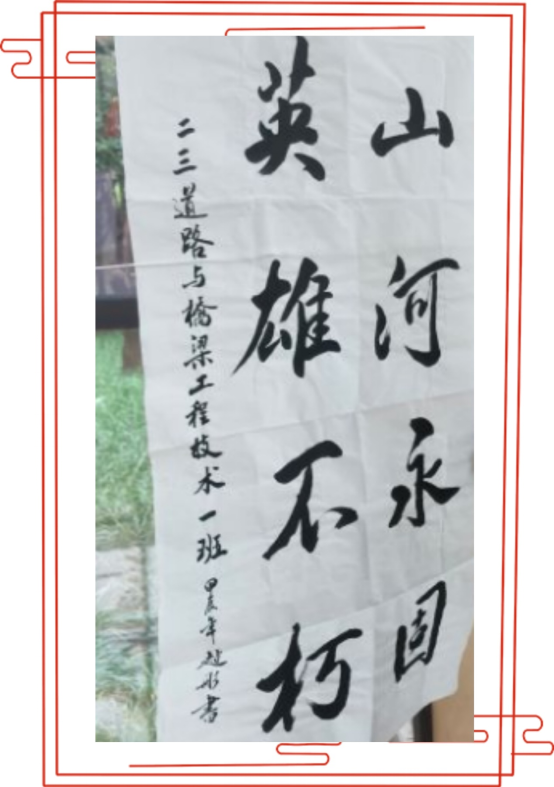 山河永固
英雄不朽
二三道路与橋梁工程技术一班
甲辰年
書